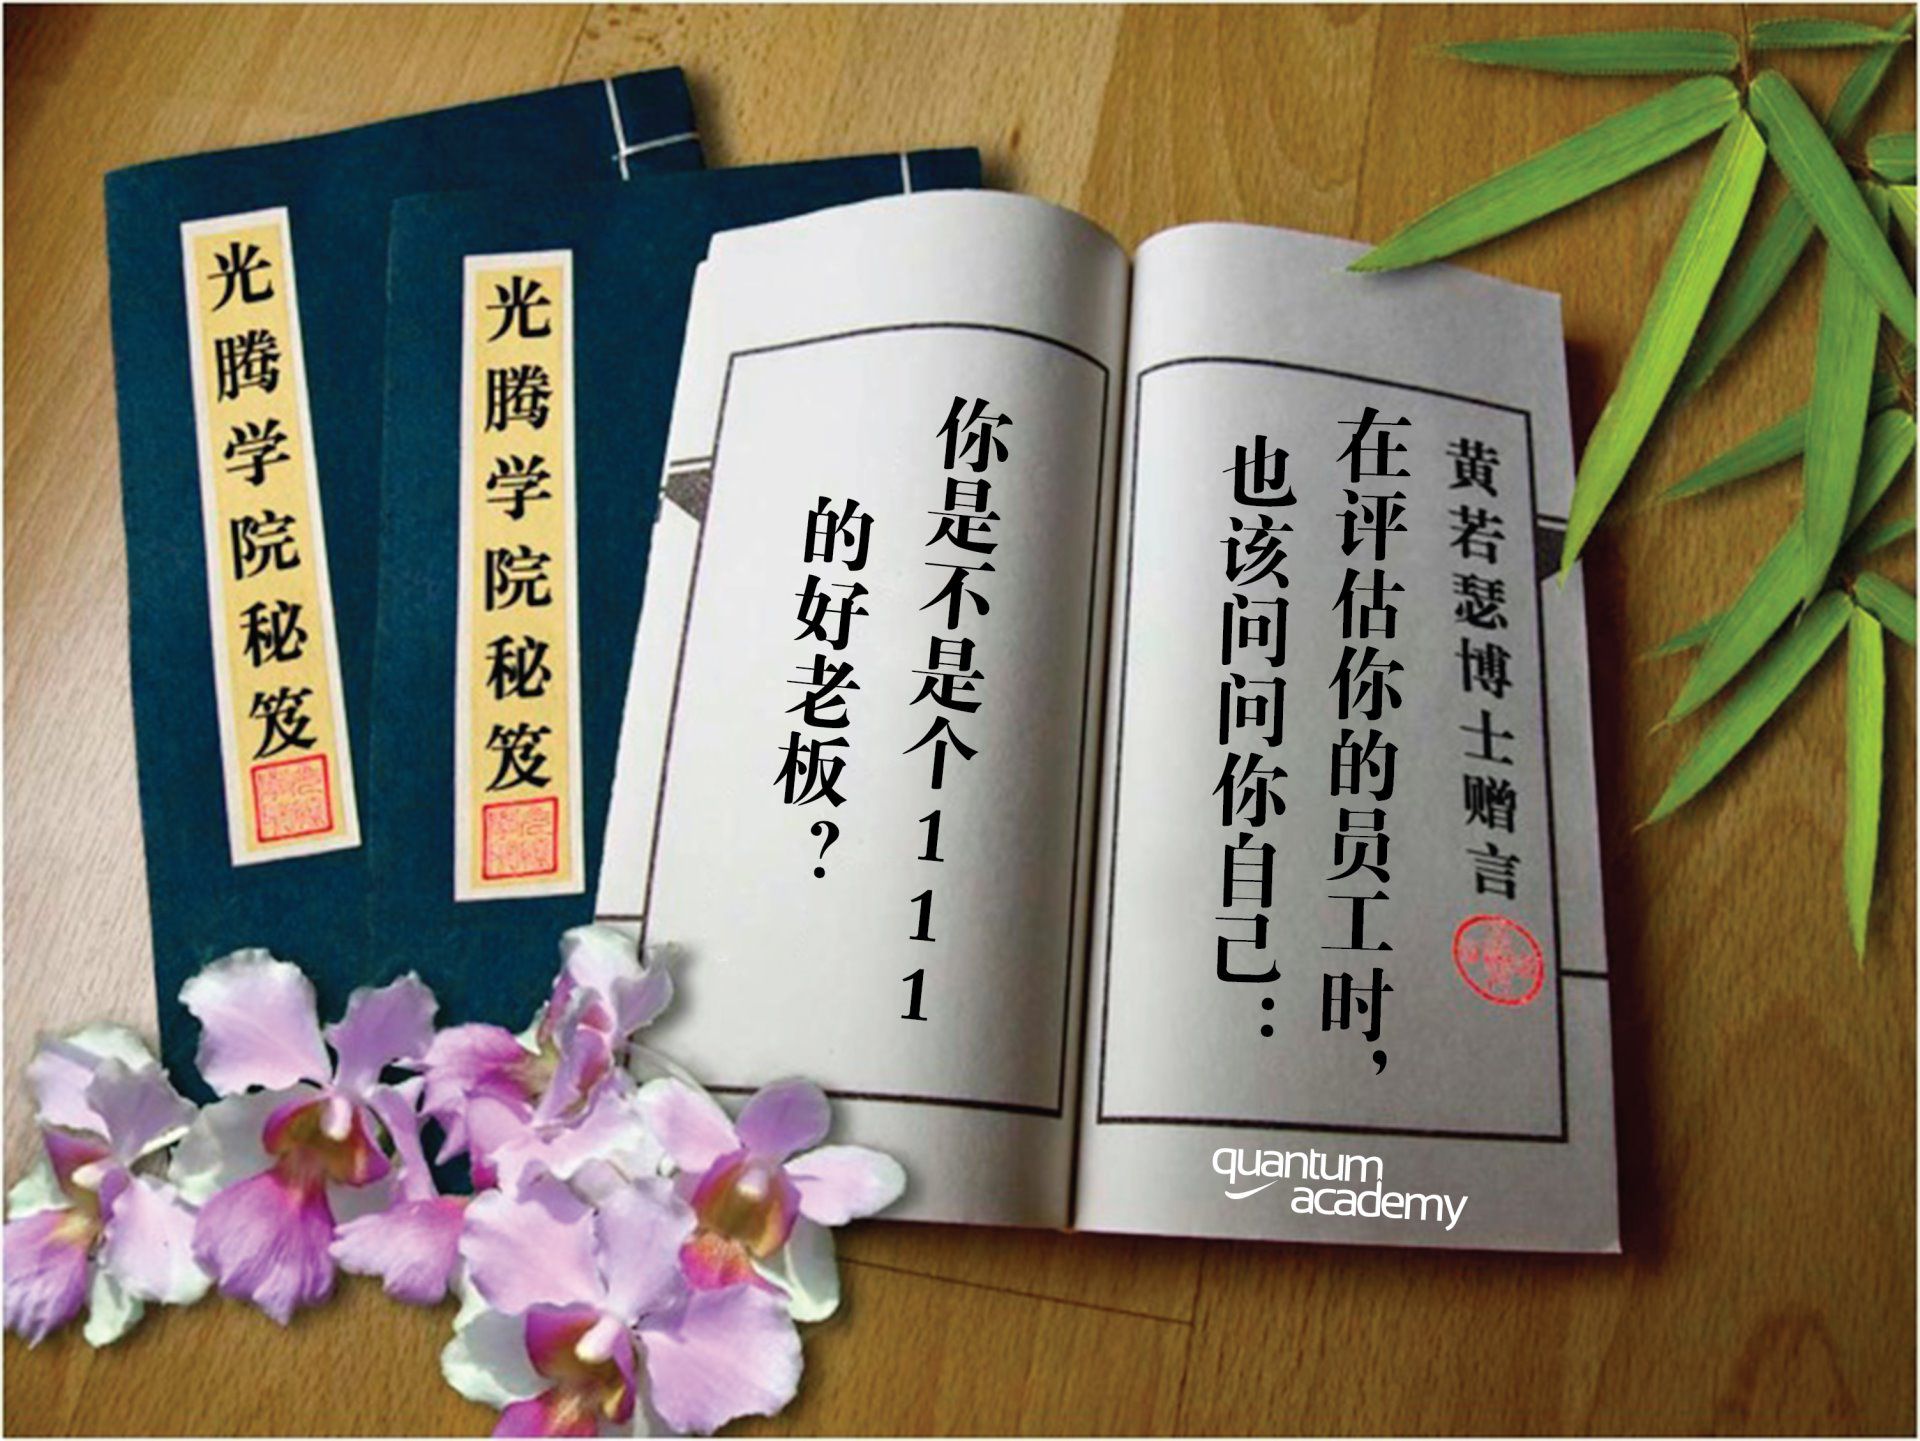 光腾学院秘笈
光腾学院秘笈
黄若瑟博士赠言
在评估你的员工时，
也该问问你自己：
你是不是个1111
的好老板？
quantum
academy